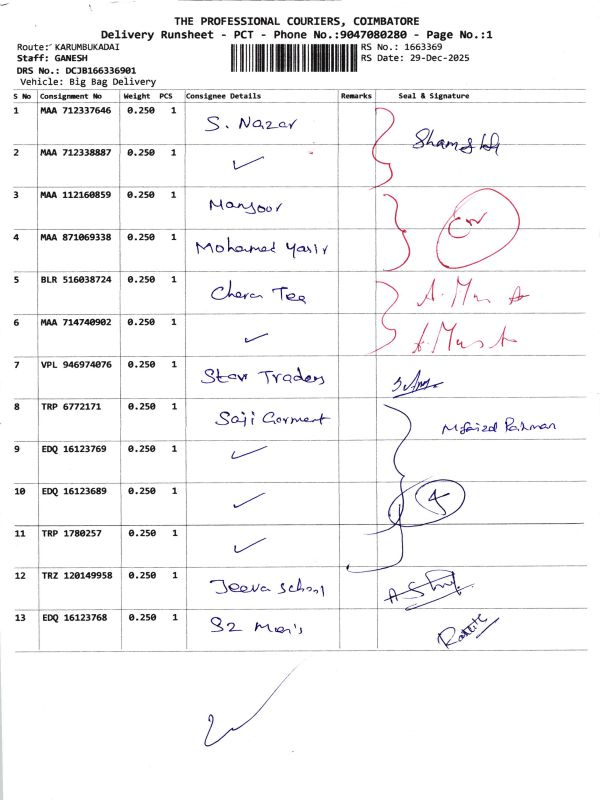 THE PROFESSIONAL COURIERS, COIMBATORE
Delivery Runsheet - PCT - Phone No.:9047080280 - Page No.:1
Route: KARUMBUKADAI RS No.: 1663369
Staff: GANESH RS Date: 29-Dec-2025
DRS No.: DCJB166336901
Vehicle: Big Bag Delivery
S No Consignment No Weight PCS Consignee Details Remarks Seal & Signature
1 MAA 712337646 0.250 1 S. Nazar
2 MAA 712338887 0.250 1 ✓
3 MAA 112160859 0.250 1 Mansoor
4 MAA 871069338 0.250 1 Mohamed Yasir
5 BLR 516038724 0.250 1 Chera Tea
6 MAA 714740902 0.250 1 ✓
7 VPL 946974076 0.250 1 Star Traders
8 TRP 6772171 0.250 1 Saji Garment
9 EDQ 16123769 0.250 1 ✓
10 EDQ 16123689 0.250 1 ✓ 4
11 TRP 1780257 0.250 1 ✓
12 TRZ 120149958 0.250 1 Jeeva School
13 EDQ 16123768 0.250 1 S2 Men's